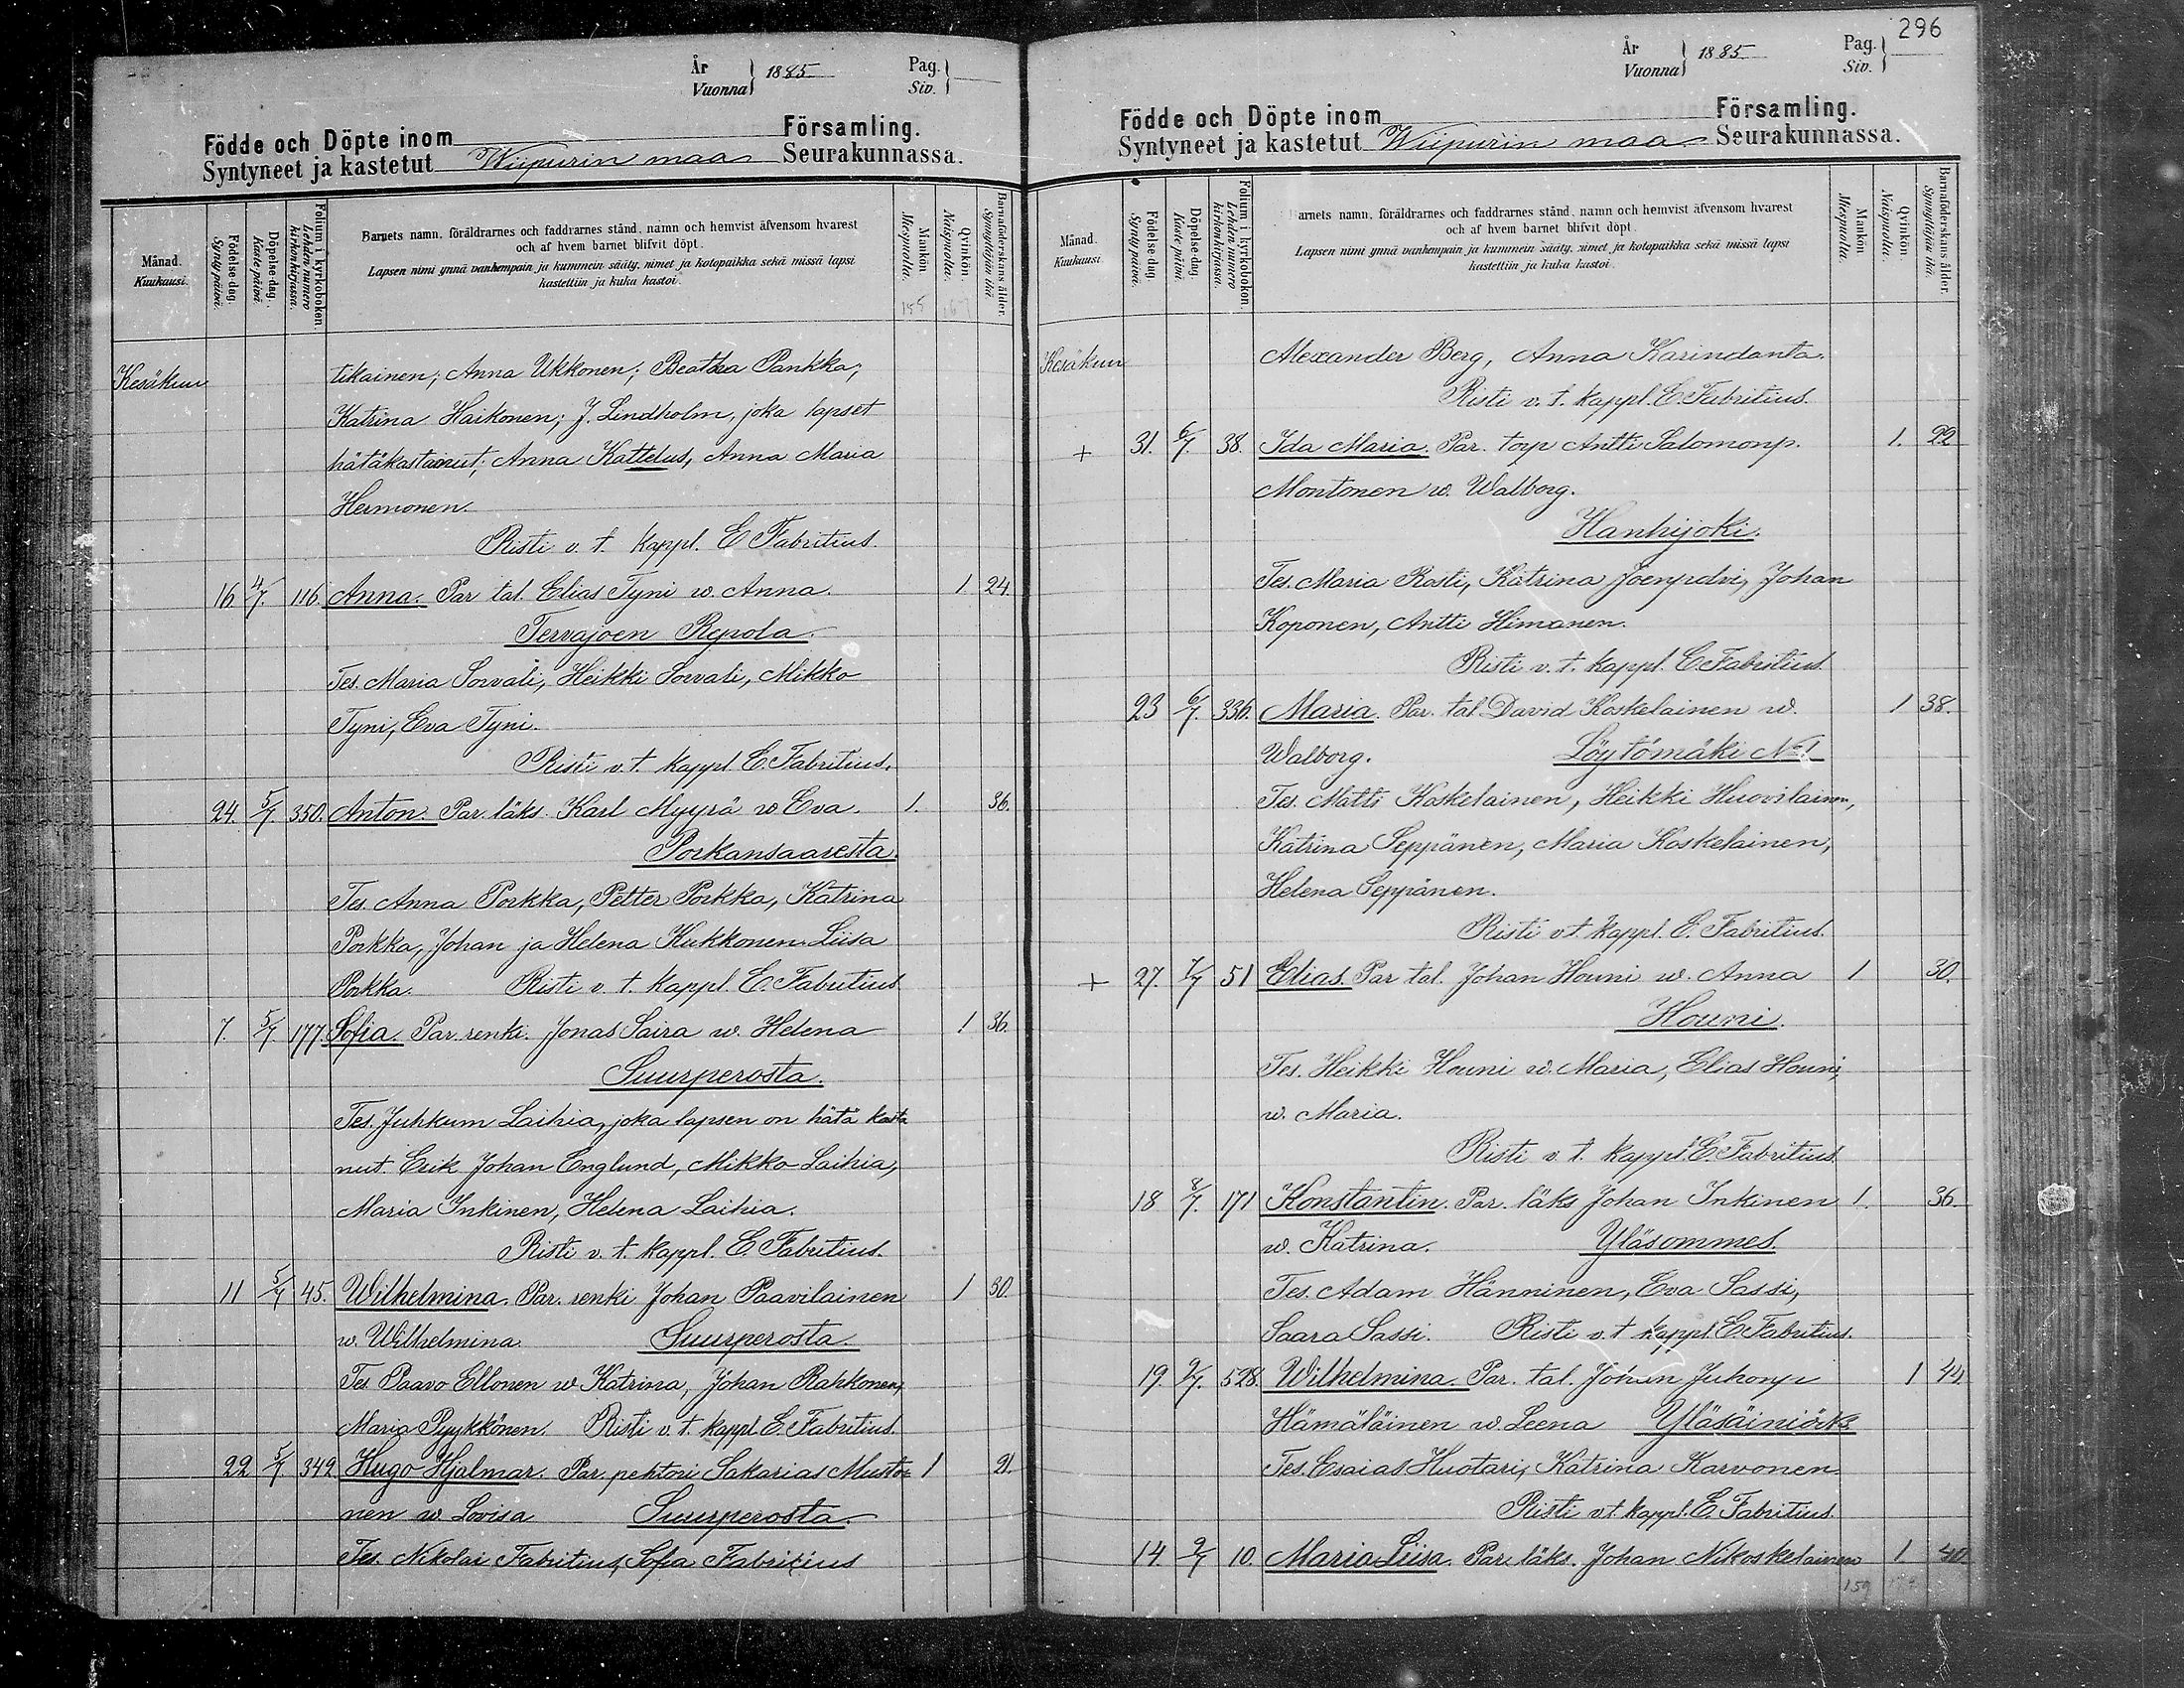 År
Vuonna } 1885
Pag.
Siv.
Födde och Döpte inom Församling.
Syntyneet ja kastetut Wiipurin maa Seurakunnassa.
Månad.
Kuukausi.
Födelse-dag.
Syntypäivä.
Döpelse-dag.
Kastepäivä.
Folium i kyrkoboken.
Lehden numero kirkonkirjassa.
Barnets namn, föräldrarnes och faddrarnes stånd, namn och hemvist äfvensom hvarest
och af hvem barnet blifvit döpt.
Lapsen nimi ynnä vanhempain ja kummein sääty, nimet ja kotopaikka sekä missä lapsi
kastettiin ja kuka kastoi.
Mankön.
Miespuolta.
Qvinkön.
Naispuolta.
Barnaföderskans ålder.
Synnyttäjän ikä.
155
Kesäkuu tikainen; Anna Ukkonen; Beatha Pankka;
Katrina Haikonen; J. Lindholm, joka lapset
hätäkastanut; Anna Kattelus, Anna Maria
Hermonen.
Risti v. t. kappl. E Fabritius.
16 4/7. 116. Anna. Par tal. Elias Tyni w. Anna. 1 24.
Tervajoen Repola.
Tes. Maria Sorvali, Heikki Sorvali, Mikko
Tyni, Eva Tyni.
Risti v. t. kappl. E. Fabritius.
24. 5/7. 350. Anton. Par. läks. Karl Myyrä w Eva. 1. 36.
Porkansaaresta.
Tes. Anna Porkka, Petter Porkka, Katrina
Porkka, Johan ja Helena Kukkonen. Liisa
Porkka. Risti v. t. kappl. E. Fabritius
7. 5/7. 177. Sofia. Par. renki. Jonas Saira w. Helena 1 36.
Suurperosta.
Tes. Juhkum Laihia, joka lapsen on hätä kasta
nut. Erik Johan Englund, Mikko Laihia,
Maria Inkinen, Helena Laihia.
Risti v. t. kappl. E. Fabritius.
11 5/7 45. Wilhelmina. Par. renki Johan Paavilainen 1 30.
w. Wilhelmina. Suurperosta.
Tes Paavo Ellonen w Katrina, Johan Rahkonen,
Maria Pyykkönen. Risti v. t. kappl. E. Fabritius.
22 5/7. 342 Hugo Hjalmar. Par. pehtori Sakarias Musto- 1 21.
nen w Lovisa Suurperosta.
Tes. Nikolai Fabritius, Sofia Fabricius
296
År
Vuonna } 1885
Pag.
Siv.
Födde och Döpte inom Församling.
Syntyneet ja kastetut Wiipurin maa Seurakunnassa.
Månad.
Kuukausi
Födelse-dag.
Syntypäivä.
Döpelse-dag.
Kastepäivä.
Folium i kyrkoboken.
Lehden numero kirkonkirjassa.
arnets namn, föräldrarnes och faddrarnes stånd, namn och hemvist äfvensom hvarest
och af hvem barnet blifvit döpt.
Lapsen nimi ynnä vanhempain ja kummein sääty, nimet ja kotopaikka sekä missä lapsi
kastettiin ja kuka kastoi.
Mankön
Miespuolta.
Qvinkön.
Naispuolta.
Barnaföderskans ålder.
Synnyttäjän ikä.
Kesäkuu Alexander Berg, Anna Karindanta.
Risti v. t. kappl. E. Fabritius.
+ 31. 6/7. 38. Ida Maria. Par. torp Antti Salomonp. 1. 22
Montonen w. Walborg.
Hanhijoki.
Tes. Maria Rasti, Katrina Joenpolvi, Johan
Koponen, Antti Himanen.
Risti v. t. kappl. E. Fabritius.
23 6/7. 336. Maria. Par. tal David Koskelainen w. 1 38.
Walborg. Löytömäki No 1
Tes. Matti Koskelainen, Heikki Huovilainen,
Katrina Seppänen, Maria Koskelainen,
Helena Seppänen.
Risti v t. kappl. E. Fabritius.
+ 27. 7/7 51 Elias. Par tal. Johan Houni w. Anna 1 30.
Houni.
Tes. Heikki Houni w. Maria, Elias Houni,
w. Maria.
Risti v. t. kappl. E. Fabritius.
18 8/7. 171 Konstantin. Par. läks Johan Inkinen 1. 36.
w. Katrina. Yläsommes.
Tes. Adam Hänninen, Eva Sassi,
Saara Sassi. Risti v. t kappl. E. Fabritius.
19. 9/7. 528. Wilhelmina. Par. tal. Johan Juhonp. 1 44.
Hämäläinen w. Leena Yläsäiniö
Tes. Esaias Huotari, Katrina Karvonen.
Risti v t. kappl. E. Fabritius.
14 9/7 10. Maria Liisa. Par. läks. Johan Nikoskelainen 1 40.
159